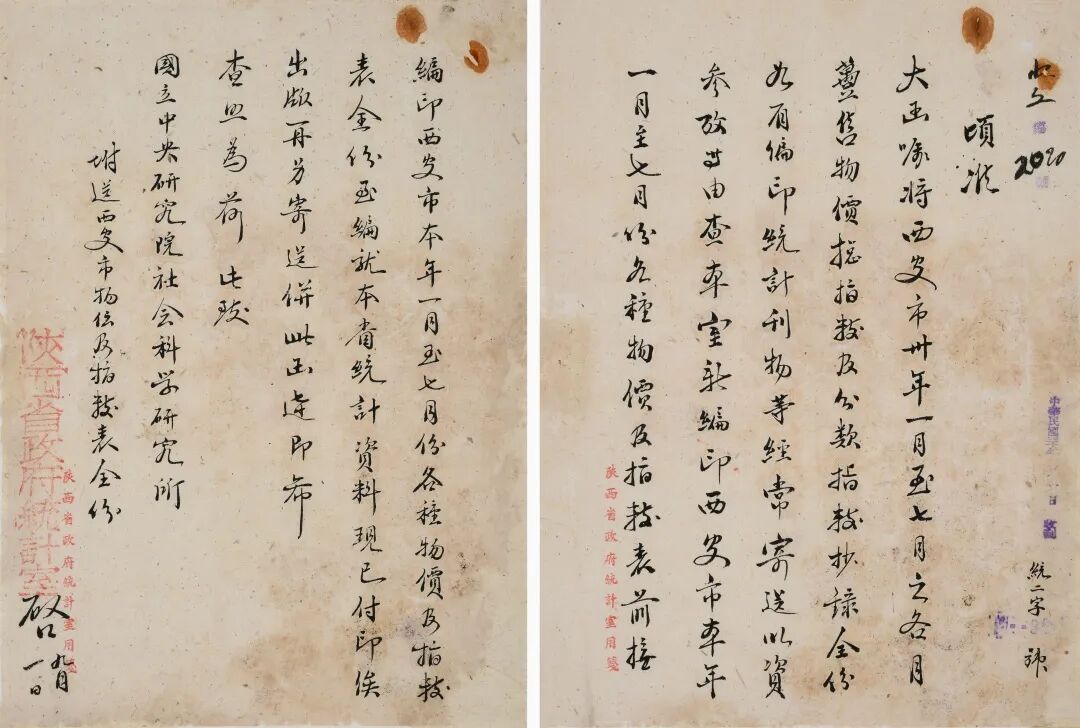 2020
統二字 號
頃准
大函囑將西安市卅年一月至七月之各月
躉售物價總指数及分類指数抄錄全份
如有編印統計刊物等經常寄送以資
参攷等由查本室新編印西安市本年
一月至七月份各種物價及指数表前接
陝西省政府統計室用箋
編印西安市本年一月至七月份各種物價及指数
表全份至編就本省統計資料現已付印俟
出版再另寄送併此函達即希
查照為荷此致
國立中央研究院社会科学研究所
附送西安市物价及指数表全份
陝西省政府統計室用箋
陝西省政府統計室
啟 九月一日